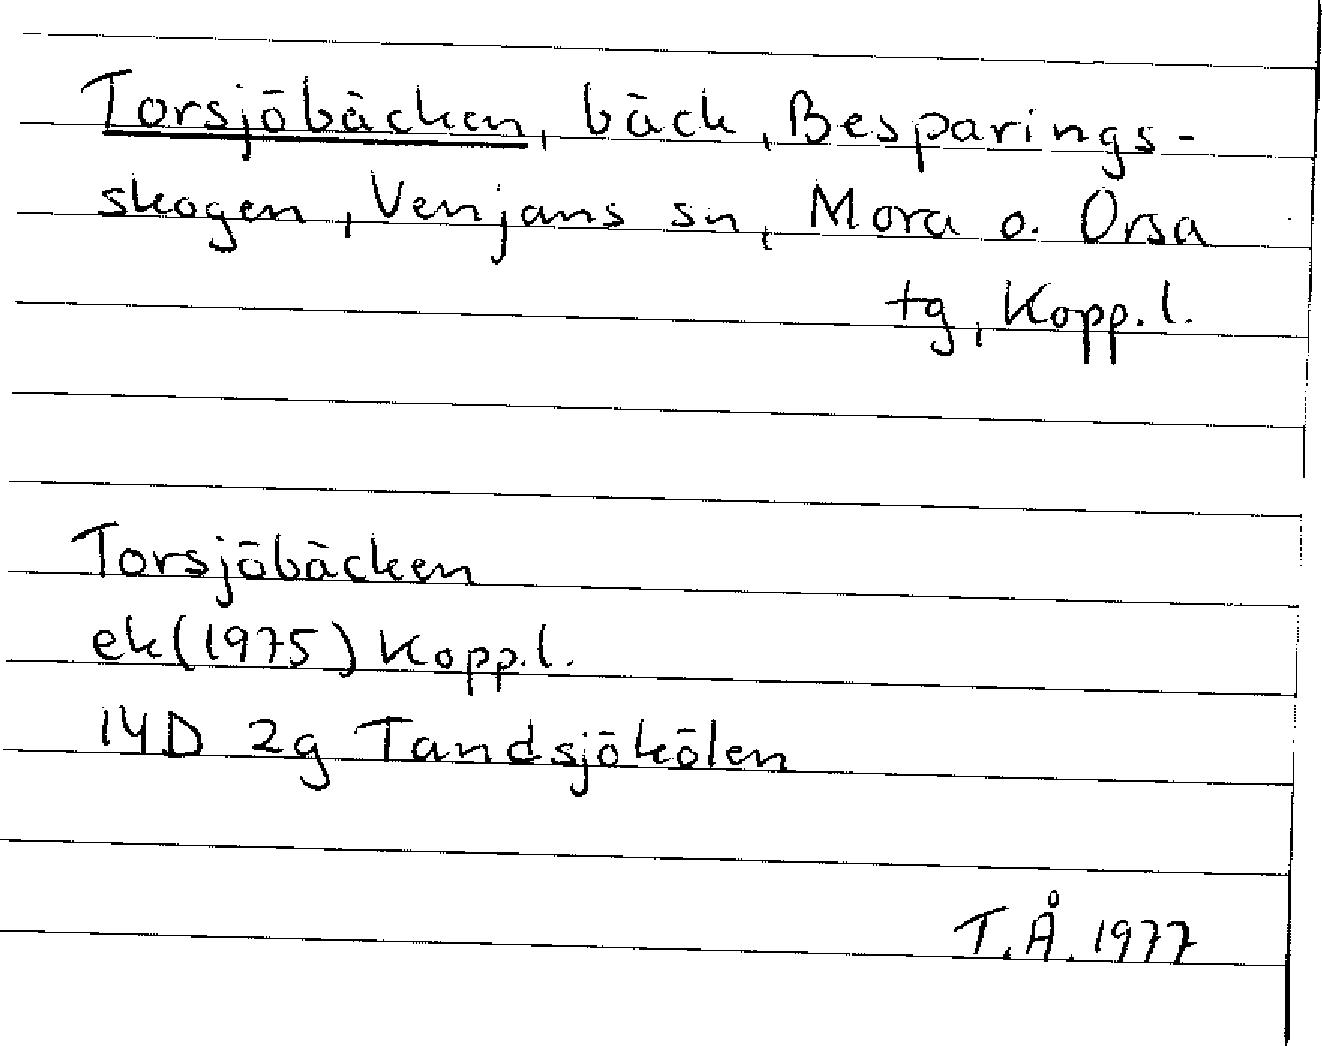 Torsjöbäcken, bäck, Besparings-
skogen, Venjans sn, Mora o. Orsa
tg, Kopp. l.
Torsjöbäcken
ek (1975) Kopp. l.
14D 2g Tandsjökölen
T. Å. 1977